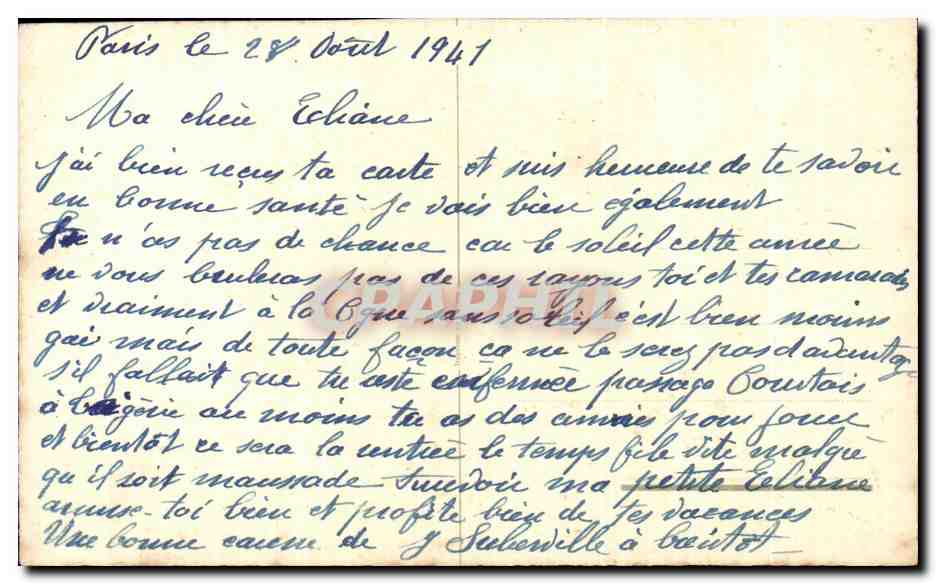 Paris le 28 Août 1941
Ma chère Eliane
J'ai bien reçus ta carte et suis heureuse de te savoir
en bonne santé Je vais bien également
Tu n'as pas de chance car le soleil cette année
ne vous bruleras pas de ces rayons toi et tes camarades
et vraiment à la sans soleil c'est bien moins
gai mais de toute façon ça ne le serez pas davantage
s'il fallait que tu reste enfermée passage Courtois
à au moins tu as des amies pour jouer
et bientôt ce sera la rentrée le temps file vite malgré
qu'il soit maussade Aurevoir ma petite Eliane
amuse-toi bien et profite bien de tes vacances
Une bonne caresse de J Suberville à bientôt
CRAPHIL